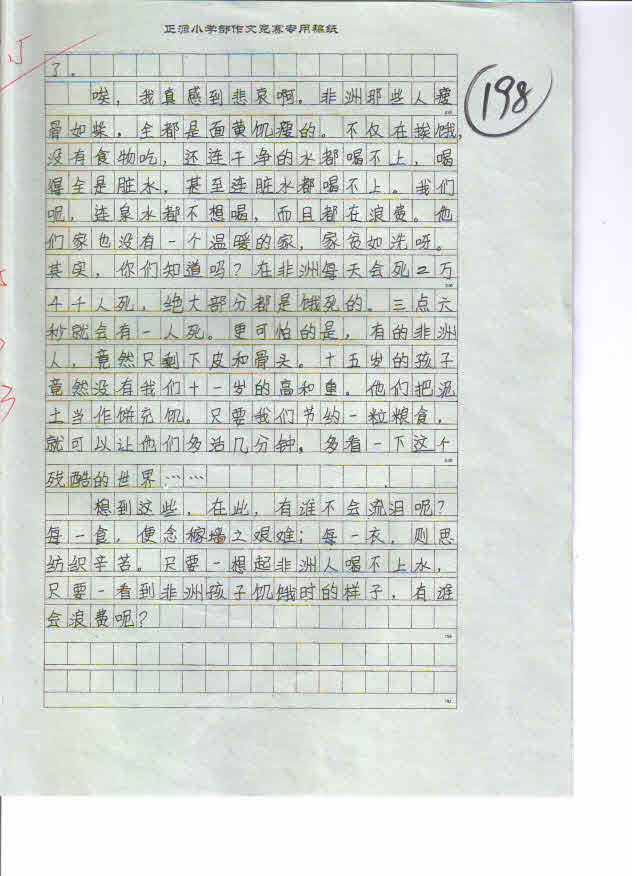 正源小学部作文竞赛专用稿纸
198
了。
唉，我真感到悲哀啊。非洲那些人瘦
骨如柴，全都是面黄饥瘦的。不仅在挨饿，
没有食物吃，还连干净的水都喝不上，喝
得全是脏水，甚至连脏水都喝不上。我们
呢，连泉水都不想喝，而且都在浪费。他
们家也没有一个温暖的家，家贫如洗呀。
其实，你们知道吗？在非洲每天会死2万
4千人死，绝大部分都是饿死的。三点六
秒就会有一人死。更可怕的是，有的非洲
人，竟然只剩下皮和骨头。十五岁的孩子
竟然没有我们十一岁的高和重。他们把泥
土当作饼充饥。只要我们节约一粒粮食，
就可以让他们多活几分钟。多看一下这个
残酷的世界……
想到这些，在此，有谁不会流泪呢？
每一食，便念稼墙之艰难；每一衣，则思
纺织辛苦。只要一想起非洲人喝不上水，
只要一看到非洲孩子饥饿时的样子，有谁
会浪费呢？